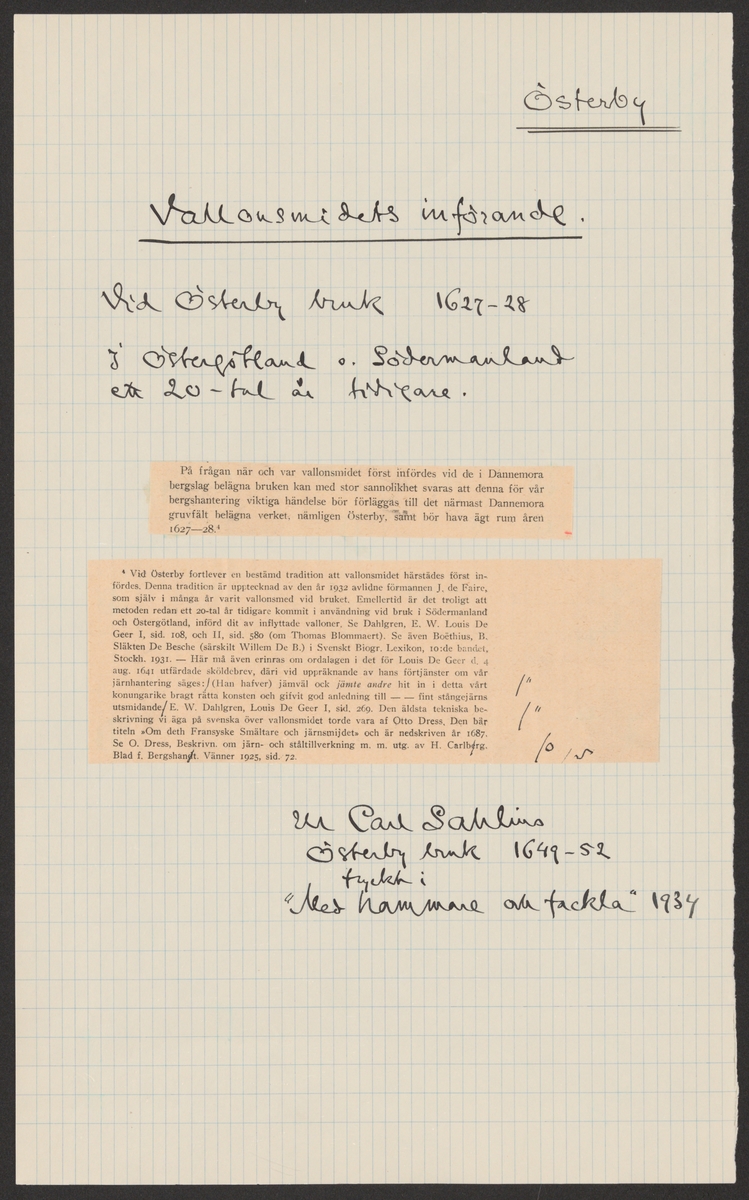 Österby
Vallonsmidets införande.
Vid Österby bruk 1627-28
I Östergötland o. Södermanland
ett 20-tal år tidigare.
På frågan när och var vallonsmidet först infördes vid de i Dannemora
bergslag belägna bruken kan med stor sannolikhet svaras att denna för vår
bergshantering viktiga händelse bör förläggas till det närmast Dannemora
gruvfält belägna verket, nämligen Österby, samt bör hava ägt rum åren
1627—28.⁴
⁴ Vid Österby fortlever en bestämd tradition att vallonsmidet härstädes först in-
fördes. Denna tradition är upptecknad av den år 1932 avlidne förmannen J. de Faire,
som själv i många år varit vallonsmed vid bruket. Emellertid är det troligt att
metoden redan ett 20-tal år tidigare kommit i användning vid bruk i Södermanland
och Östergötland, införd dit av inflyttade valloner. Se Dahlgren, E. W. Louis De
Geer I, sid. 108, och II, sid. 580 (om Thomas Blommaert). Se även Boëthius, B.
Släkten De Besche (särskilt Willem De B.) i Svenskt Biogr. Lexikon, 10:de bandet,
Stockh. 1931. — Här må även erinras om ordalagen i det för Louis De Geer d. 4
aug. 1641 utfärdade sköldebrev, däri vid uppräknande av hans förtjänster om vår
järnhantering säges:/(Han hafver) jämväl ock jämte andre hit in i detta vårt
konungarike bragt rätta konsten och gifvit god anledning till — — fint stångejärns
utsmidande/ E. W. Dahlgren, Louis De Geer I, sid. 269. Den äldsta tekniska be-
skrivning vi äga på svenska över vallonsmidet torde vara af Otto Dress. Den bär
titeln »Om deth Fransyske Smältare och järnsmijdet» och är nedskriven år 1687.
Se O. Dress, Beskrivn. om järn- och ståltillverkning m. m. utg. av H. Carlberg.
Blad f. Bergshandt. Vänner 1925, sid. 72.
/"
/"
Ur Carl Sahlins
Österby bruk 1649-52
tryckt i
"Med hammare och fackla" 1934